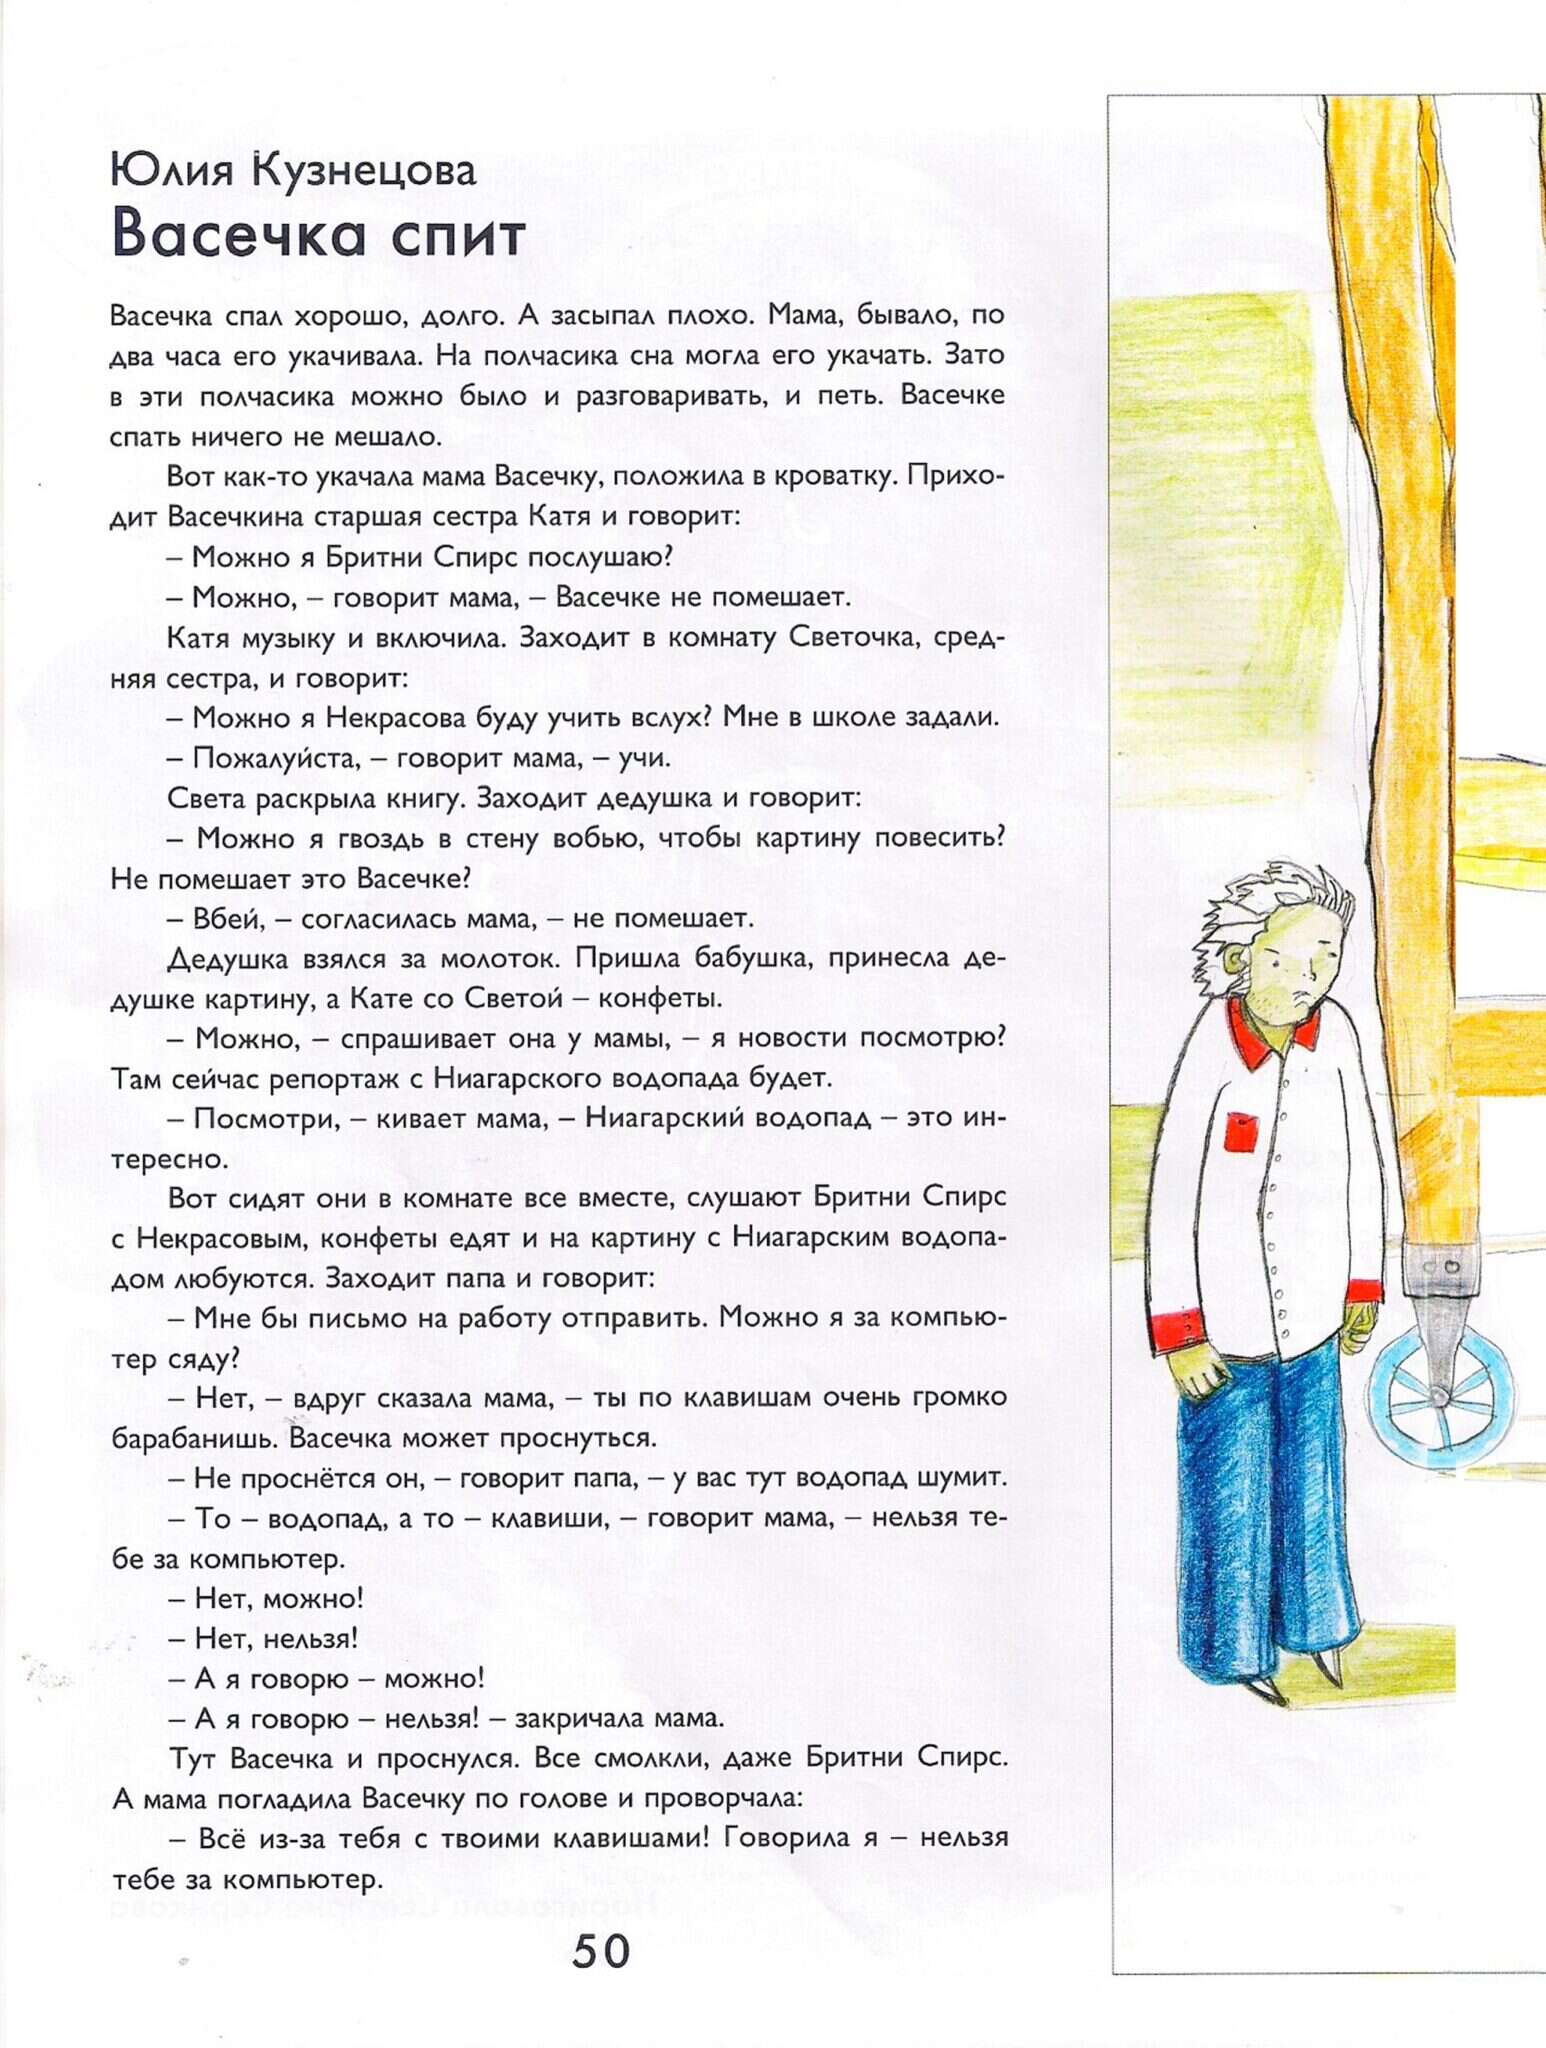 Юлия Кузнецова
Васечка спит
Васечка спал хорошо, долго. А засыпал плохо. Мама, бывало, по
два часа его укачивала. На полчасика сна могла его укачать. Зато
в эти полчасика можно было и разговаривать, и петь. Васечке
спать ничего не мешало.
Вот как-то укачала мама Васечку, положила в кроватку. Прихо-
дит Васечкина старшая сестра Катя и говорит:
– Можно я Бритни Спирс послушаю?
– Можно, – говорит мама, – Васечке не помешает.
Катя музыку и включила. Заходит в комнату Светочка, сред-
няя сестра, и говорит:
– Можно я Некрасова буду учить вслух? Мне в школе задали.
– Пожалуйста, – говорит мама, – учи.
Света раскрыла книгу. Заходит дедушка и говорит:
– Можно я гвоздь в стену вобью, чтобы картину повесить?
Не помешает это Васечке?
– Вбей, – согласилась мама, – не помешает.
Дедушка взялся за молоток. Пришла бабушка, принесла де-
душке картину, а Кате со Светой – конфеты.
– Можно, – спрашивает она у мамы, – я новости посмотрю?
Там сейчас репортаж с Ниагарского водопада будет.
– Посмотри, – кивает мама, – Ниагарский водопад – это ин-
тересно.
Вот сидят они в комнате все вместе, слушают Бритни Спирс
с Некрасовым, конфеты едят и на картину с Ниагарским водопа-
дом любуются. Заходит папа и говорит:
– Мне бы письмо на работу отправить. Можно я за компью-
тер сяду?
– Нет, – вдруг сказала мама, – ты по клавишам очень громко
барабанишь. Васечка может проснуться.
– Не проснётся он, – говорит папа, – у вас тут водопад шумит.
– То – водопад, а то – клавиши, – говорит мама, – нельзя те-
бе за компьютер.
– Нет, можно!
– Нет, нельзя!
– А я говорю – можно!
– А я говорю – нельзя! – закричала мама.
Тут Васечка и проснулся. Все смолкли, даже Бритни Спирс.
А мама погладила Васечку по голове и проворчала:
– Всё из-за тебя с твоими клавишами! Говорила я – нельзя
тебе за компьютер.
50